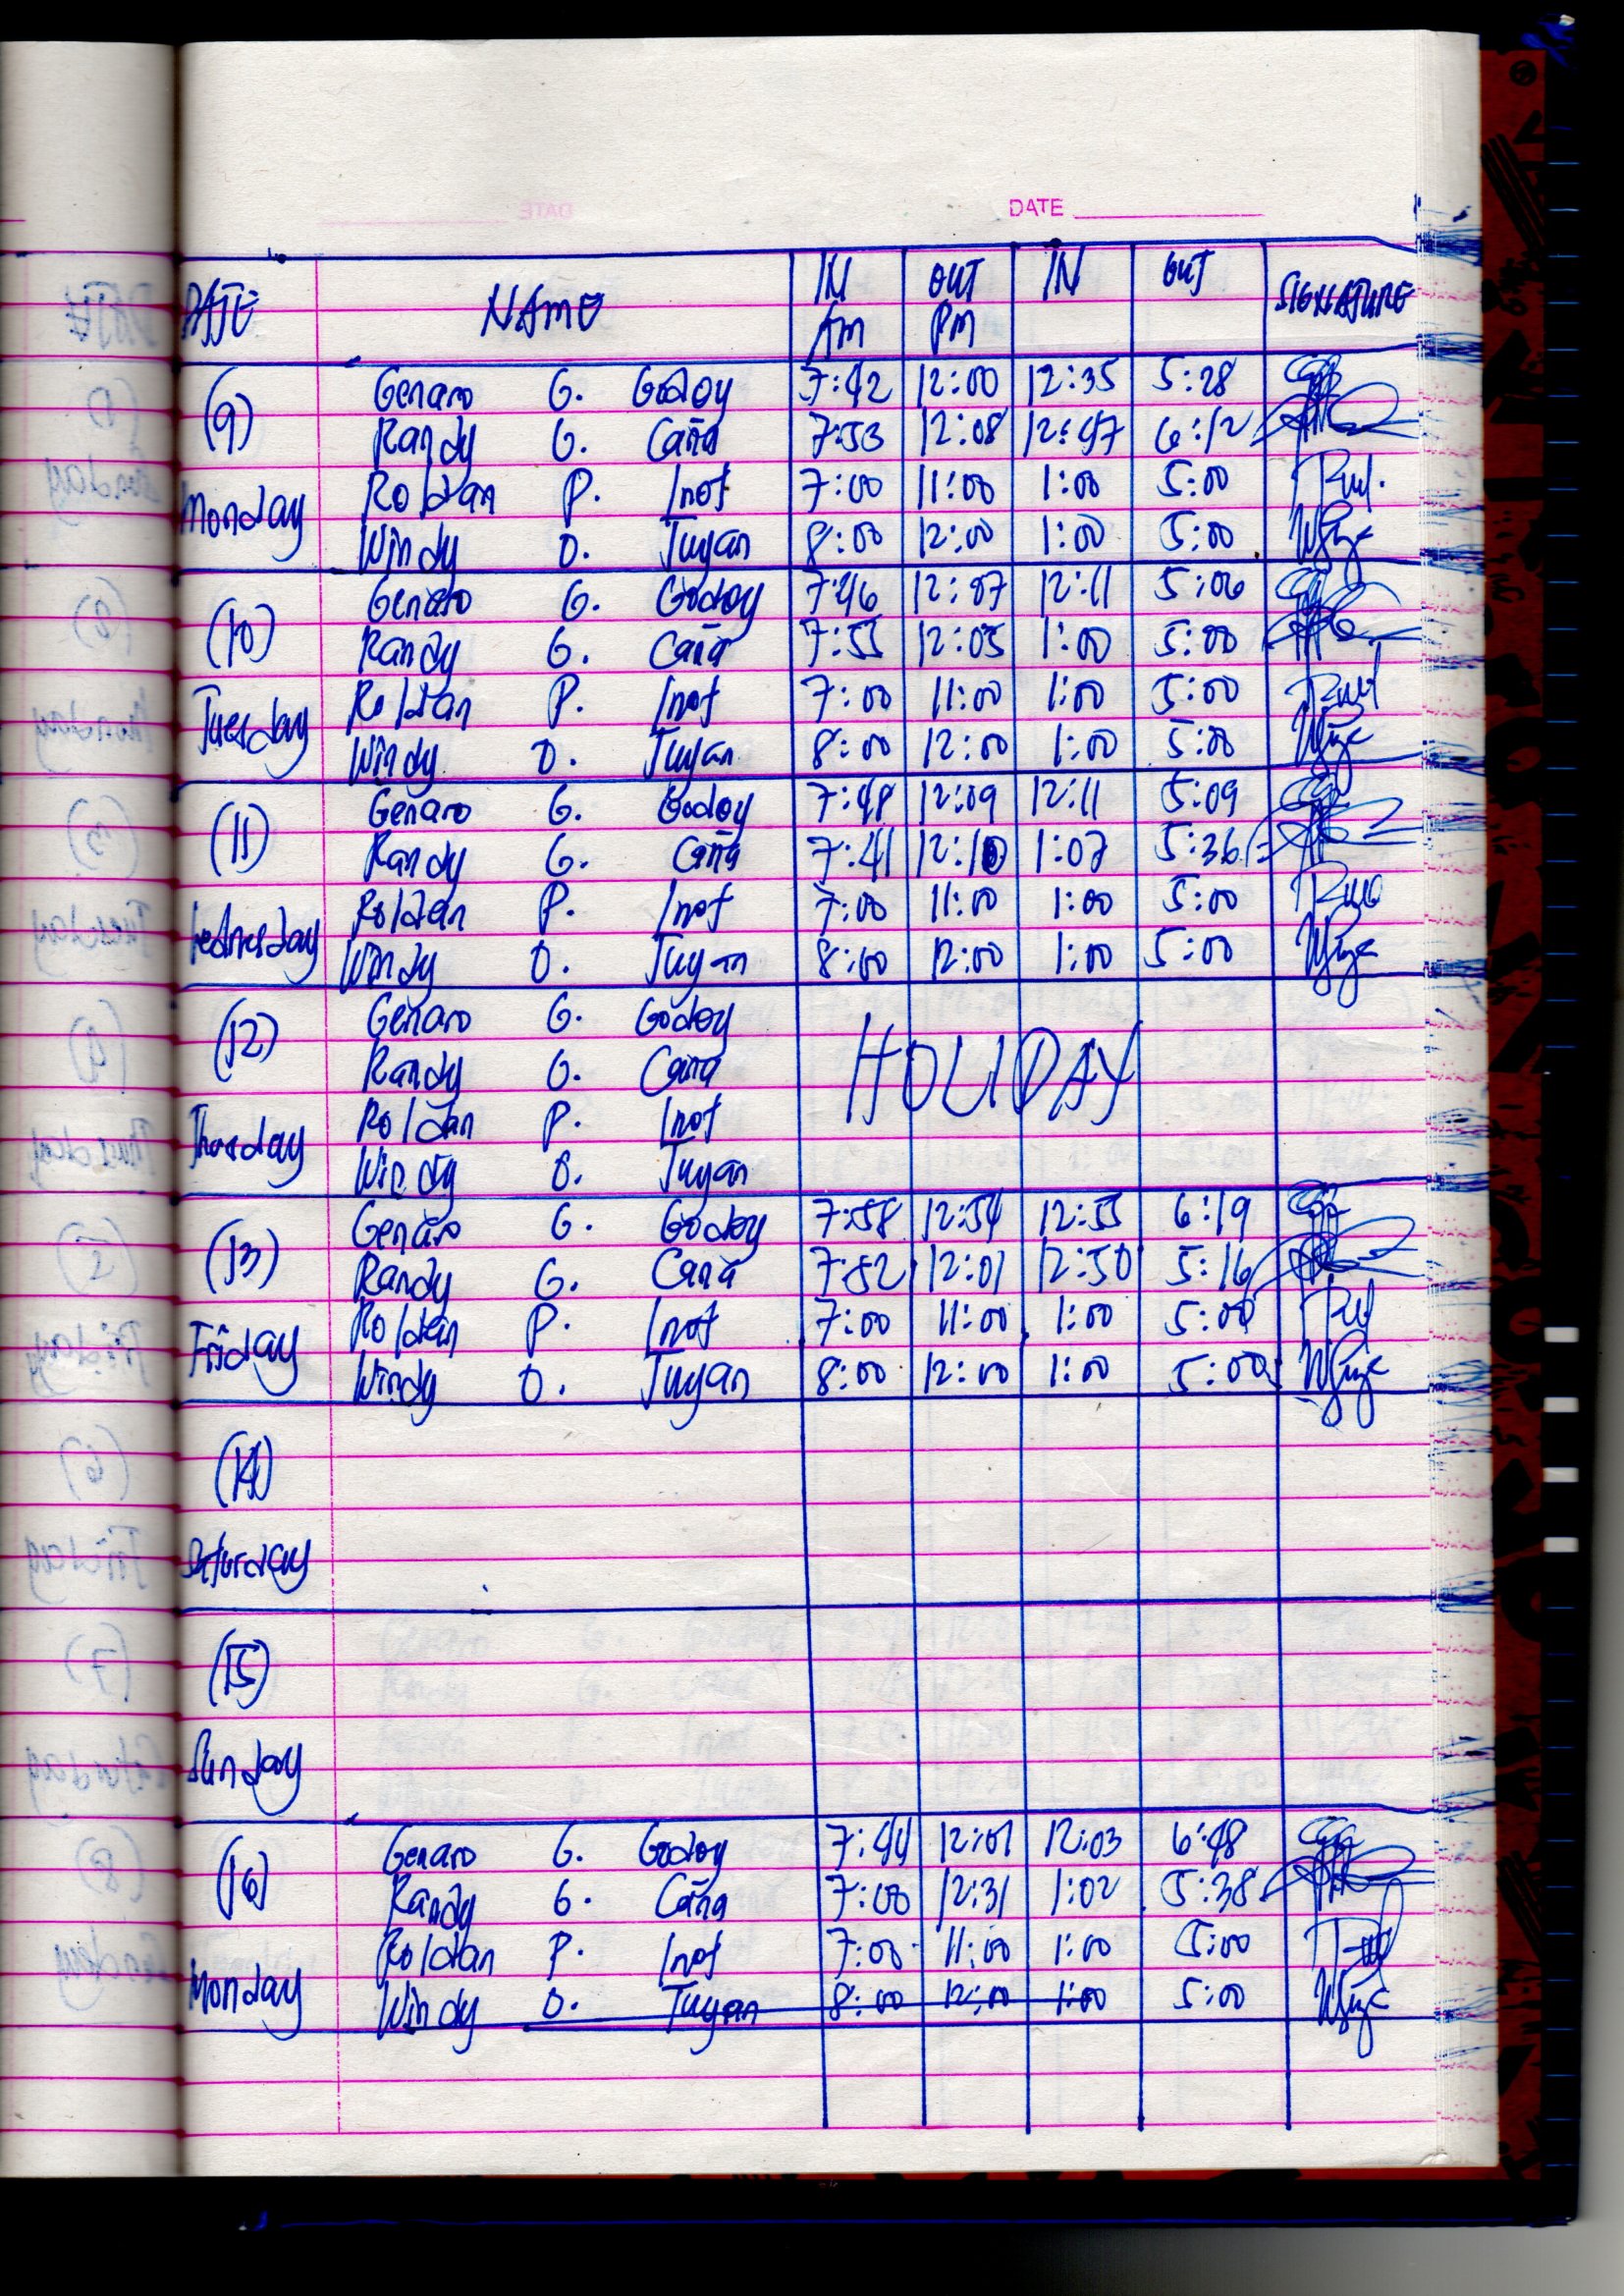 DATE
DATE NAME IN AM OUT PM IN OUT SIGNATURE
(9) Genaro G. Godoy 7:42 12:00 12:35 5:28
Randy G. Caña 7:53 12:08 12:47 6:12
Monday Roldan P. Inot 7:00 11:00 1:00 5:00
Windy O. Tuyan 8:00 12:00 1:00 5:00
(10) Genaro G. Godoy 7:46 12:07 12:11 5:06
Randy G. Caña 7:55 12:05 1:00 5:00
Tuesday Roldan P. Inot 7:00 11:00 1:00 5:00
Windy O. Tuyan 8:00 12:00 1:00 5:00
(11) Genaro G. Godoy 7:48 12:09 12:11 5:09
Randy G. Caña 7:41 12:10 1:07 5:36
Wednesday Roldan P. Inot 7:00 11:00 1:00 5:00
Windy O. Tuyan 8:00 12:00 1:00 5:00
(12) Genaro G. Godoy
Randy G. Caña HOLIDAY
Thursday Roldan P. Inot
Windy O. Tuyan
(13) Genaro G. Godoy 7:58 12:54 12:55 6:19
Randy G. Caña 7:52 12:01 12:50 5:16
Friday Roldan P. Inot 7:00 11:00 1:00 5:00
Windy O. Tuyan 8:00 12:00 1:00 5:00
(14)
Saturday
(15)
Sunday
(16) Genaro G. Godoy 7:44 12:01 12:03 6:48
Randy G. Caña 7:00 12:31 1:02 5:38
Monday Roldan P. Inot 7:00 11:00 1:00 5:00
Windy O. Tuyan 8:00 12:00 1:00 5:00